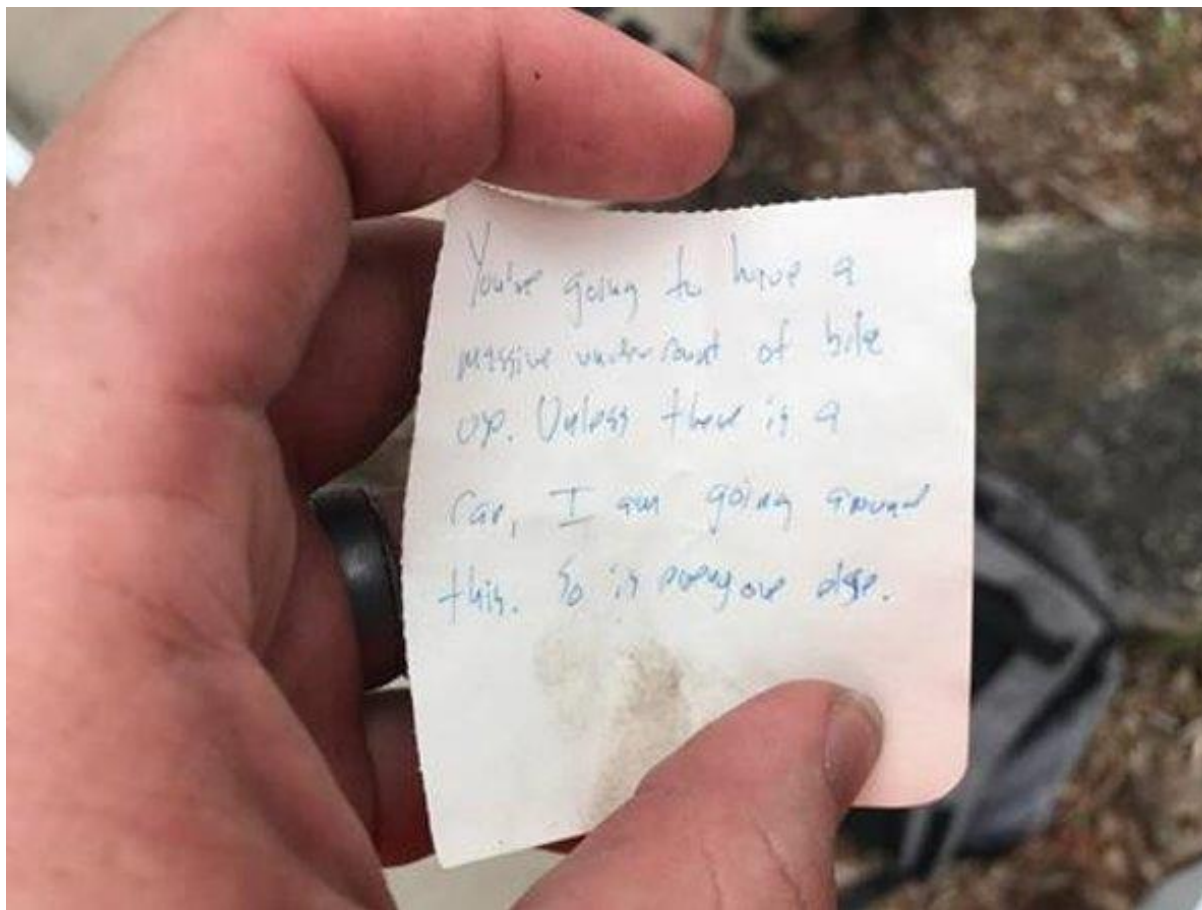 You're going to have a
massive undercount of bike
use. Unless there is a
car, I am going around
this. So is everyone else.